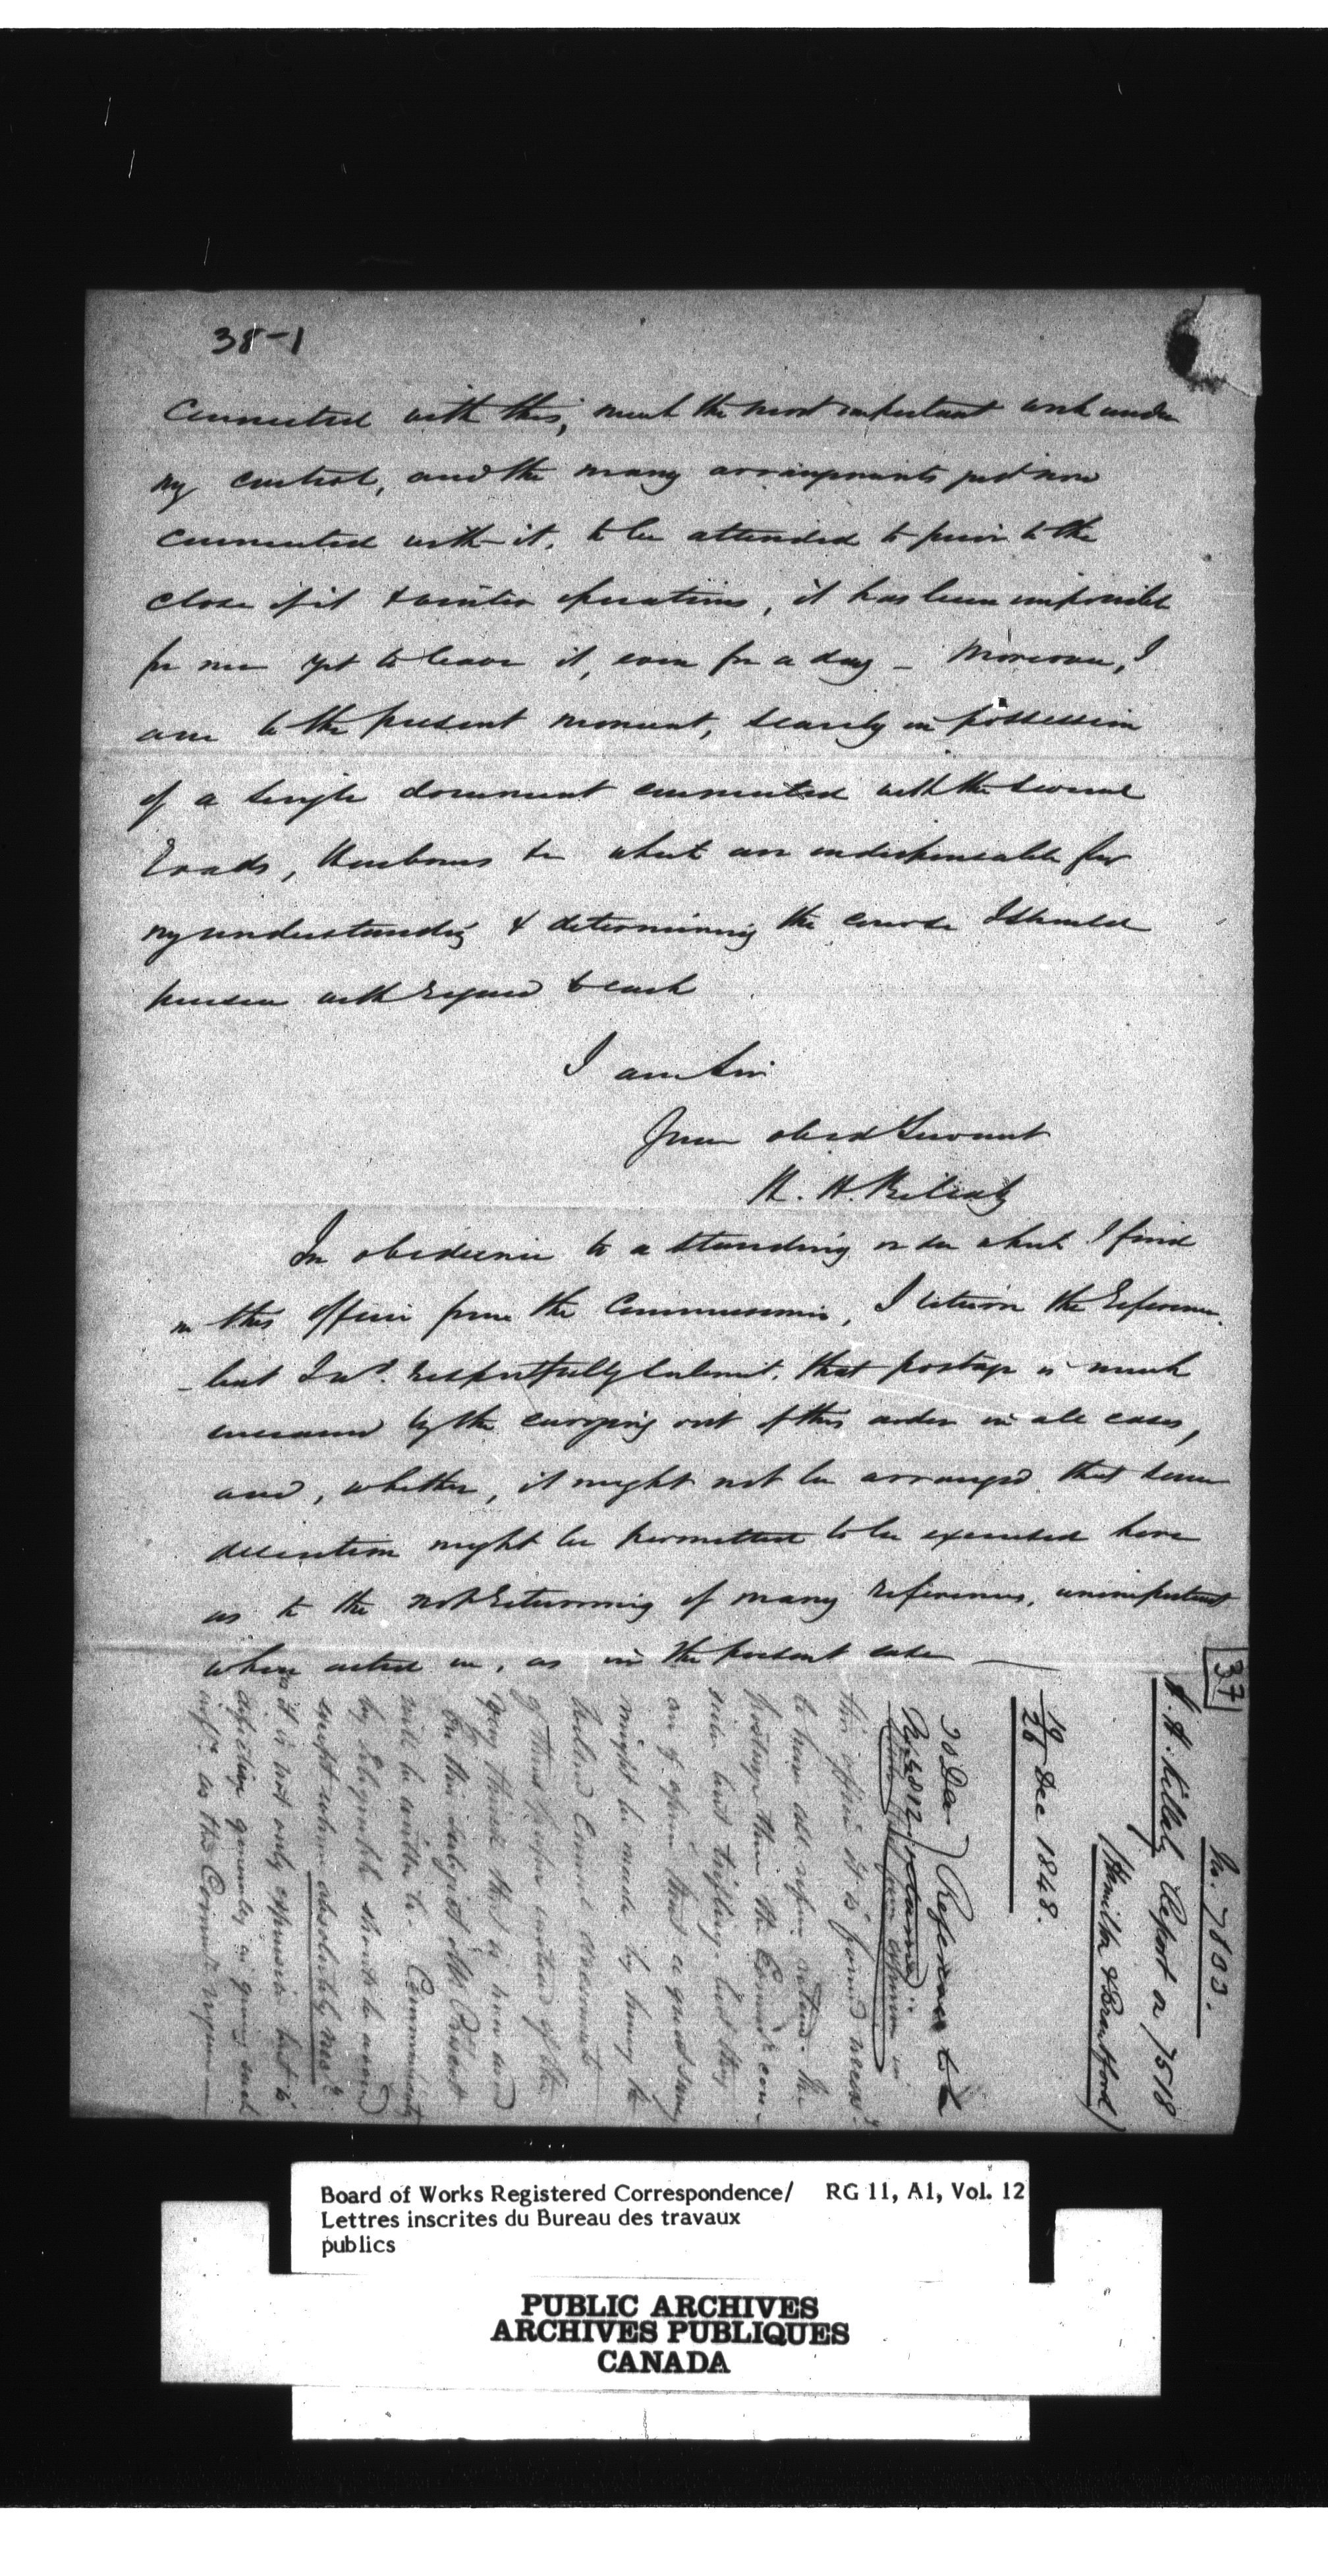 38-1
connected with this, much the most important work under
my control, and the many arrangements just now
connected with it, to be attended to prior to the
close of it & winter operations, it has been impossible
for me yet to leave it, even for a day - Moreover, I
am to the present moment, scarcely in possession
of a single document connected with the several
Roads, Harbours &c which are indispensable for
my understanding & determining the course I should
pursue with regard to each
I am Sir
Your obedt Servant
H. H. Killaly
In obedience to a standing order which I find
in this office from the Commissioners, I return the Reference
- but I wd. respectfully submit, that postage is much
increased by the carrying out of this order in all cases,
and, whether, it might not be arranged that some
discretion might be permitted to be exercised here
as to the not returning of many references, unimportant
when acted on, as in the present case
37
No. 7803.
H. H. Killaly Report on 7518
(Hamilton & Brantford)
19/26 Dec 1848.
30 Dec
Reference to be
retained
this office it is found necessy
to have all refces returned. The
postage then the Commrs con-
sider but trifling but they
are of opinion that a great saving
might be made by having the
of their proper instead of the
they think that as him and
on this subject other Persons
will be written to. Communicate
by Telegraph should be avoided
except when absolutely necy.
as it is not only expensive but is
defective generally in giving such
infn. as the Commrs require -
Board of Works Registered Correspondence/ RG 11, A1, Vol. 12
Lettres inscrites du Bureau des travaux
publics
PUBLIC ARCHIVES
ARCHIVES PUBLIQUES
CANADA